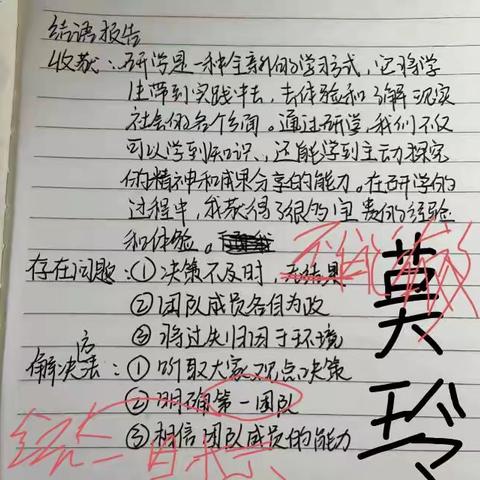 结语报告
收获:研学是一种全新的学习方式,它将学
生带到实践中去,去体验和了解现实
社会的各个方面。通过研学,我们不仅
可以学到知识、还能学到主动探究
的精神和成果分享的能力。在研学的
过程中,我获得了很多宝贵的经验
和体验。
存在问题:①决策不及时,无结果
②团队成员各自为政
③将过失归因于环境
解决方案:①听取大家观点决策
②明确第一团队
③相信团队成员的能力
莫玲